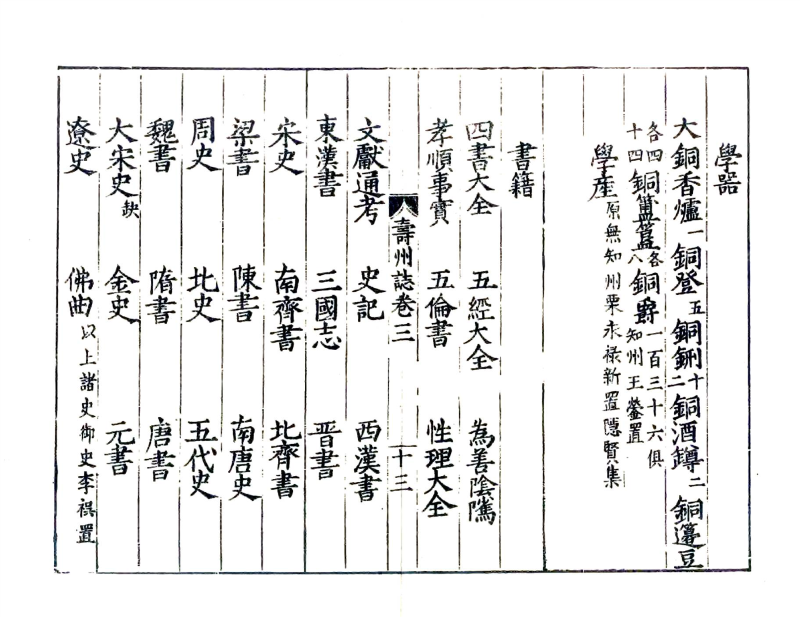 學器
大銅香爐一銅登五銅鉶十二銅酒罇二銅籩豆
各四十四銅簠簋各八銅爵一百三十六俱知州王鎣置
學産原無知州栗永禄新置隱賢集
書籍
四書大全 五經大全 為善陰隲
孝順事實 五倫書 性理大全
壽州誌卷三 十三
文獻通考 史記 西漢書
東漢書 三國志 晋書
宋史 南齊書 北齊書
梁書 陳書 南唐史
周史 北史 五代史
魏書 隋書 唐書
大宋史缺 金史 元書
遼史 佛曲以上諸史御史李祺置